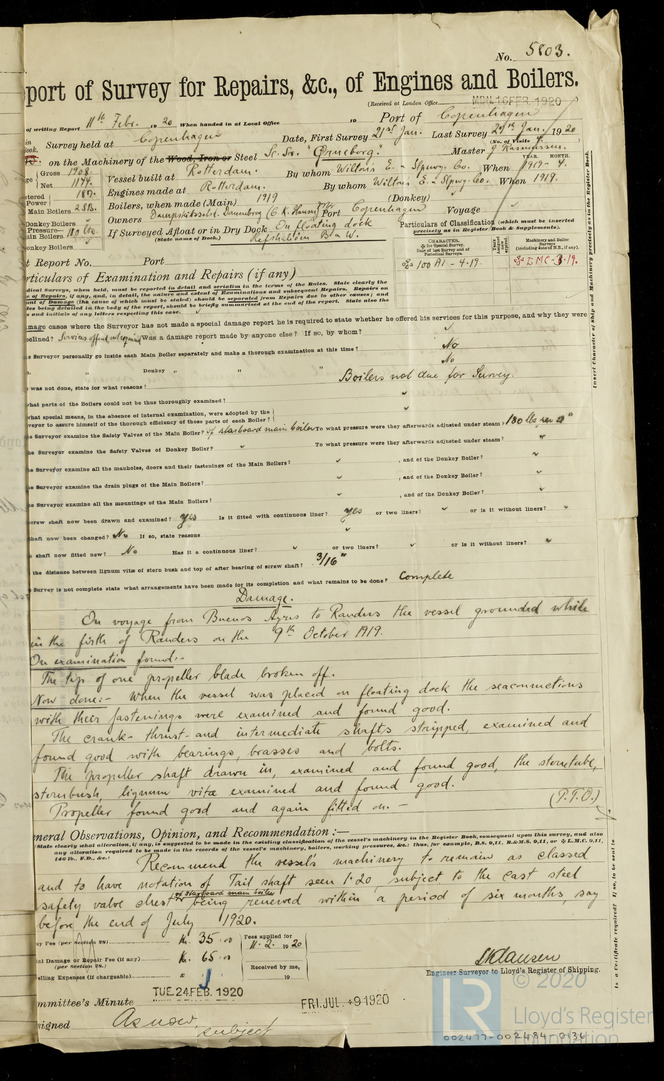 No. 5803.
port of Survey for Repairs, &c., of Engines and Boilers.
(Received at London Office MON. 16 FEB. 1920
of writing Report 11th Febr. 1920 When handed in at Local Office 19 Port of Copenhagen
Survey held at Copenhagen Date, First Survey 21st Jan. Last Survey 29th Jan. 1920
(No. of Visits 4.
on the Machinery of the Wood, Iron or Steel Sc. Sr. "Ørneborg". Master J. Rasmussen.
Gross 1908. Vessel built at Rotterdam. By whom Wilton's E. & Slipway Co. When 1919 - 4.
YEAR. MONTH.
Net 1174. Engines made at Rotterdam. By whom Wilton's E. & Slipwy. Co. When 1919.
187. Boilers, when made (Main) 1919 (Donkey)
Main Boilers 2 SB. Owners Dampskibsselsk. Dannebrog (C. K. Hansen) Port Copenhagen Voyage
Donkey Boilers
Pressure 180 lbs If Surveyed Afloat or in Dry Dock On floating dock
(State name of Dock.) Refshaleøn B & W.
Donkey Boilers
Particulars of Classification (which must be inserted
precisely as in Register Book & Supplements).
CHARACTER.
100 A1 - 4.19.
LMC - 3.19.
t Report No. Port
rticulars of Examination and Repairs (if any)
mage cases where the Surveyor has not made a special damage report he is required to state whether he offered his services for this purpose, and why they were
eclined? Was a damage report made by anyone else? If so, by whom?
e Surveyor personally go inside each Main Boiler separately and make a thorough examination at this time? No
" Donkey " " " No
was not done, state for what reasons? Boilers not due for Survey
hat parts of the Boilers could not be thus thoroughly examined? "
what special means, in the absence of internal examination, were adopted by the
veyor to assure himself of the thorough efficiency of those parts of each Boiler? "
e Surveyor examine the Safety Valves of the Main Boiler? of starboard main boiler To what pressure were they afterwards adjusted under steam? 180 lbs per □"
e Surveyor examine the Safety Valves of Donkey Boiler? " To what pressure were they afterwards adjusted under steam? "
e Surveyor examine all the manholes, doors and their fastenings of the Main Boilers? " , and of the Donkey Boiler? "
e Surveyor examine the drain plugs of the Main Boilers? " , and of the Donkey Boiler? "
e Surveyor examine all the mountings of the Main Boilers? " , and of the Donkey Boiler? "
screw shaft now been drawn and examined? Yes Is it fitted with continuous liner? Yes or two liners? " or is it without liners? "
shaft now been changed? No If so, state reasons "
e shaft now fitted new? No Has it a continuous liner? " or two liners? " or is it without liners? "
the distance between lignum vitæ of stern bush and top of after bearing of screw shaft? 3/16"
e Survey is not complete state what arrangements have been made for its completion and what remains to be done? Complete
Damage.
On voyage from Buenos Ayres to Randers the vessel grounded while
in the firth of Randers on the 9th October 1919.
On examination found:-
The tip of one propeller blade broken off.
Now done:- When the vessel was placed on floating dock the seaconnections
with their fastenings were examined and found good.
The crank- thrust- and intermediate shafts stripped, examined and
found good with bearings, brasses and bolts.
The propeller shaft drawn in, examined and found good, the sterntube,
sternbush, lignum vitæ examined and found good.
Propeller found good and again fitted on. — (P.T.O.)
neral Observations, Opinion, and Recommendation :—
(State clearly what alteration, if any, is suggested to be made in the existing classification of the vessel's machinery in the Register Book, consequent upon this survey, and also
any alteration required to be made in the records of the vessel's machinery, boilers, working pressures, &c.: Thus, for example, B.S. 9,11, B.&M.S. 9,11, or L.M.C. 9,11,
140 lb., F.D., &c.)
Recommend the vessel's machinery to remain as classed
and to have notation of Tail shaft seen 1.20, subject to the cast steel
safety valve chest of starboard main boiler being renewed within a period of six months, say
before the end of July 1920.
Kr. 35.00 Fees applied for
11. 2. 1920
al Damage or Repair Fee (if any) Kr. 65.00
(per Section 28.) Received by me,
elling Expenses (if chargeable) 19
Engineer Surveyor to Lloyd's Register of Shipping.
mmittee's Minute TUE. 24 FEB. 1920 FRI. JUL. -9 1920
signed As now
subject
© 2020
LR Lloyd's Register
Foundation
002477-002484-0134